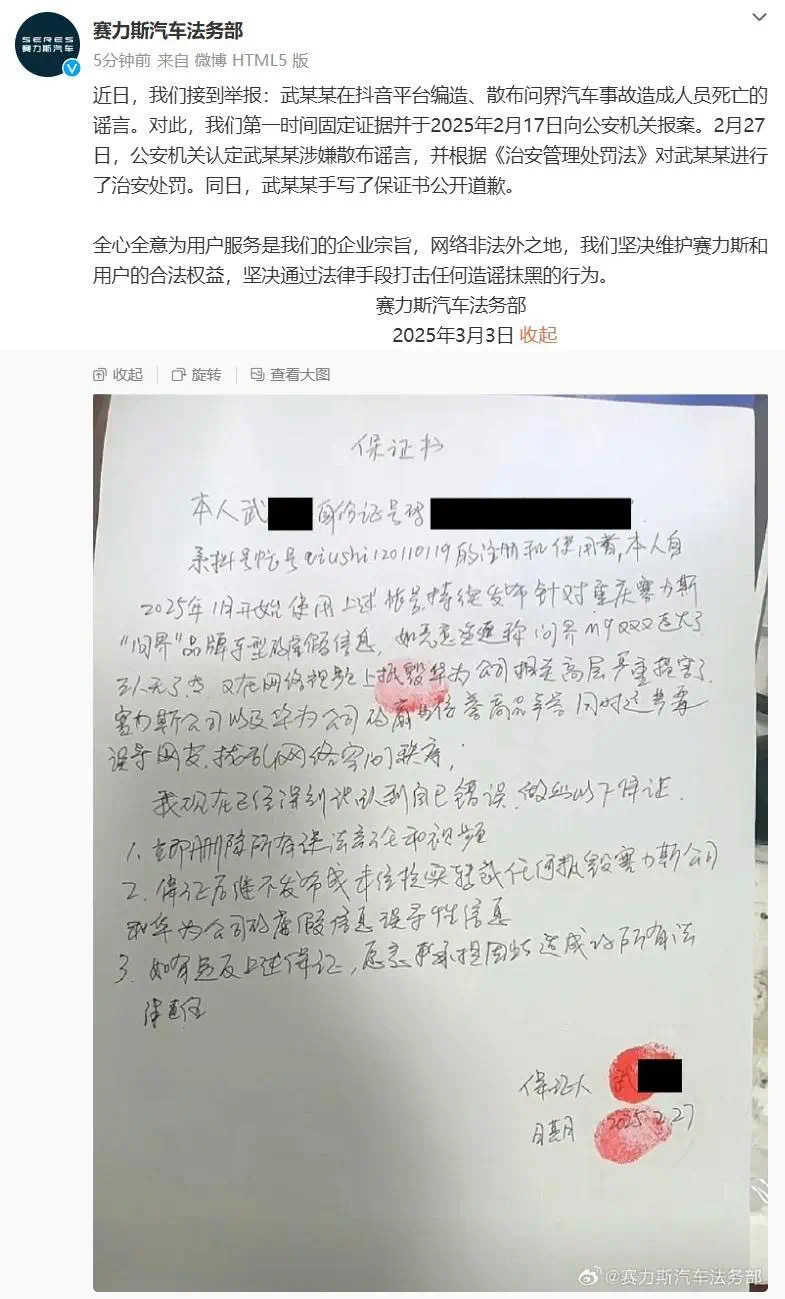 SERES
赛力斯汽车
赛力斯汽车法务部
5分钟前 来自 微博 HTML5 版
近日，我们接到举报：武某某在抖音平台编造、散布问界汽车事故造成人员死亡的
谣言。对此，我们第一时间固定证据并于2025年2月17日向公安机关报案。2月27
日，公安机关认定武某某涉嫌散布谣言，并根据《治安管理处罚法》对武某某进行
了治安处罚。同日，武某某手写了保证书公开道歉。
全心全意为用户服务是我们的企业宗旨，网络非法外之地，我们坚决维护赛力斯和
用户的合法权益，坚决通过法律手段打击任何造谣抹黑的行为。
赛力斯汽车法务部
2025年3月3日 收起
收起 旋转 查看大图
保证书
本人武 身份证号码
系抖音帐号 120110119的注册和使用者，本人自
2025年1月开始使用上述帐号，持续发布针对重庆赛力斯
"问界"品牌车型的虚假信息，如恶意造谣称问界M9XXX起火了
三人无了当，又在网络视频上抵毁华为公司相关高层严重损害了
赛力斯公司以及华为公司的商业信誉商品声誉同时这严重
误导网友，扰乱网络空间秩序；
我现在已经深刻认识到自己错误，做出以下保证．
1、立即删除所有违法言论和视频
2、保证后继不发布或未经核实转载任何抵毁赛力斯公司
和华为公司的虚假信息误导性信息
3、如有违反上述保证，愿意承担因此造成的所有法
律责任
保证人 武
日期 2025.2.27
@赛力斯汽车法务部